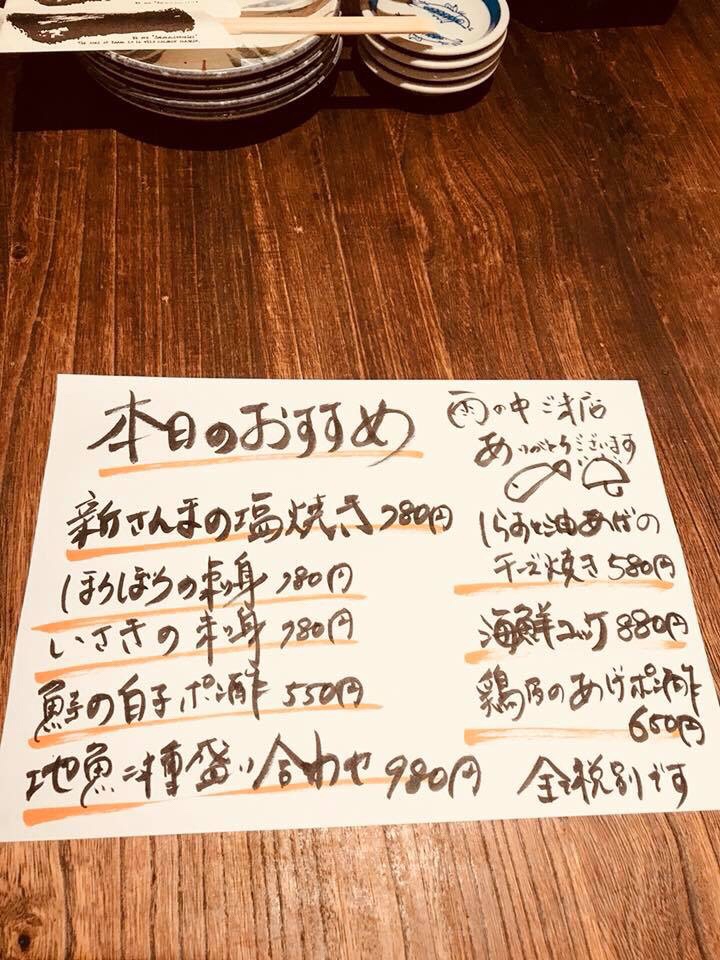 本日のおすすめ
新さんまの塩焼き 780円
ほうぼうの刺身 780円
いさきの刺身 780円
鱈の白子ポン酢 550円
地魚三種盛り合わせ 980円
雨の中ご来店
ありがとうございます
しらすと油あげの
チーズ焼き 580円
海鮮ユッケ 880円
鶏皮のあげポン酢
650円
全て税別です